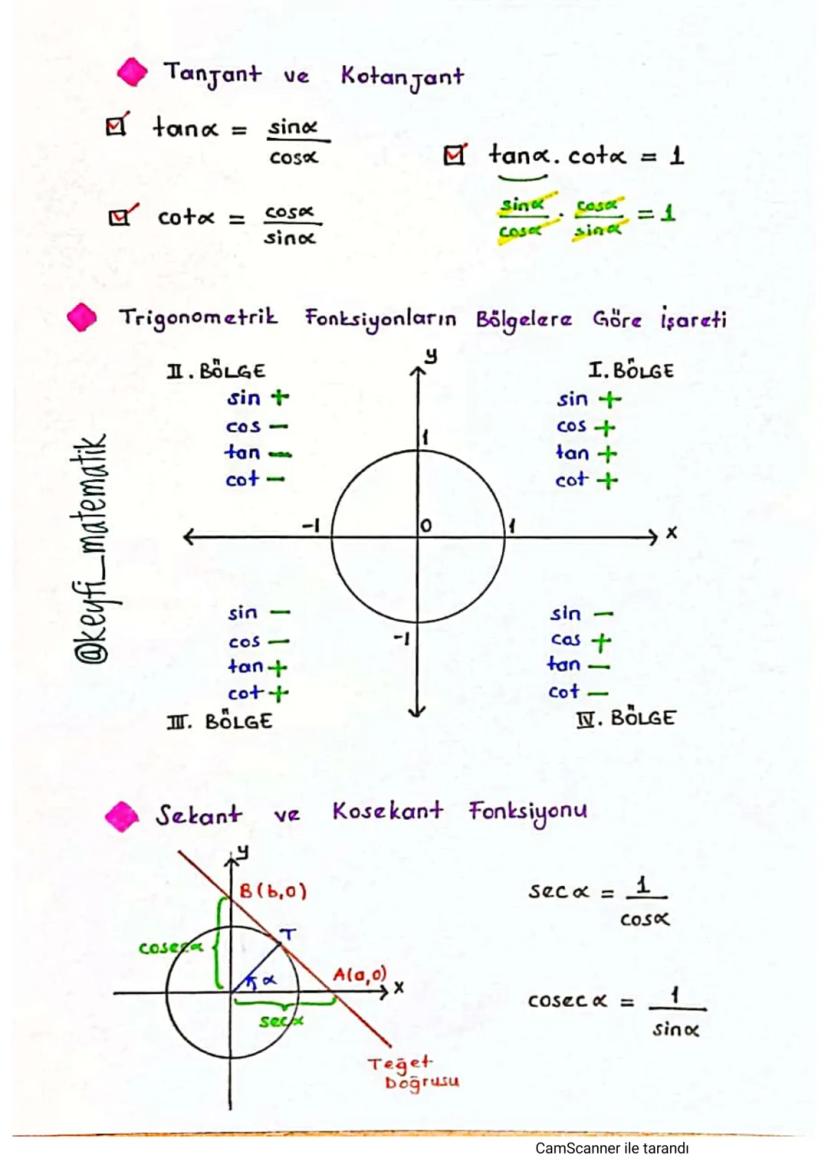 Tanjant ve Kotanjant
tanα = sinα / cosα
tanα . cotα = 1
cotα = cosα / sinα
sinα / cosα . cosα / sinα = 1
Trigonometrik Fonksiyonların Bölgelere Göre işareti
II. BÖLGE
sin +
cos −
tan −
cot −
I. BÖLGE
sin +
cos +
tan +
cot +
y
1
-1
0
1
x
-1
@keyfi_matematik
sin −
cos −
tan +
cot +
III. BÖLGE
sin −
cos +
tan −
cot −
IV. BÖLGE
Sekant ve Kosekant Fonksiyonu
y
B(b,0)
T
cosecα
α
A(a,0)
x
secα
Teğet
Doğrusu
secα = 1 / cosα
cosecα = 1 / sinα
CamScanner ile tarandı